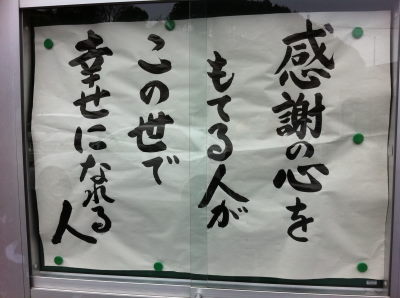 感謝の心を
もてる人が
この世で
幸せになれる
人